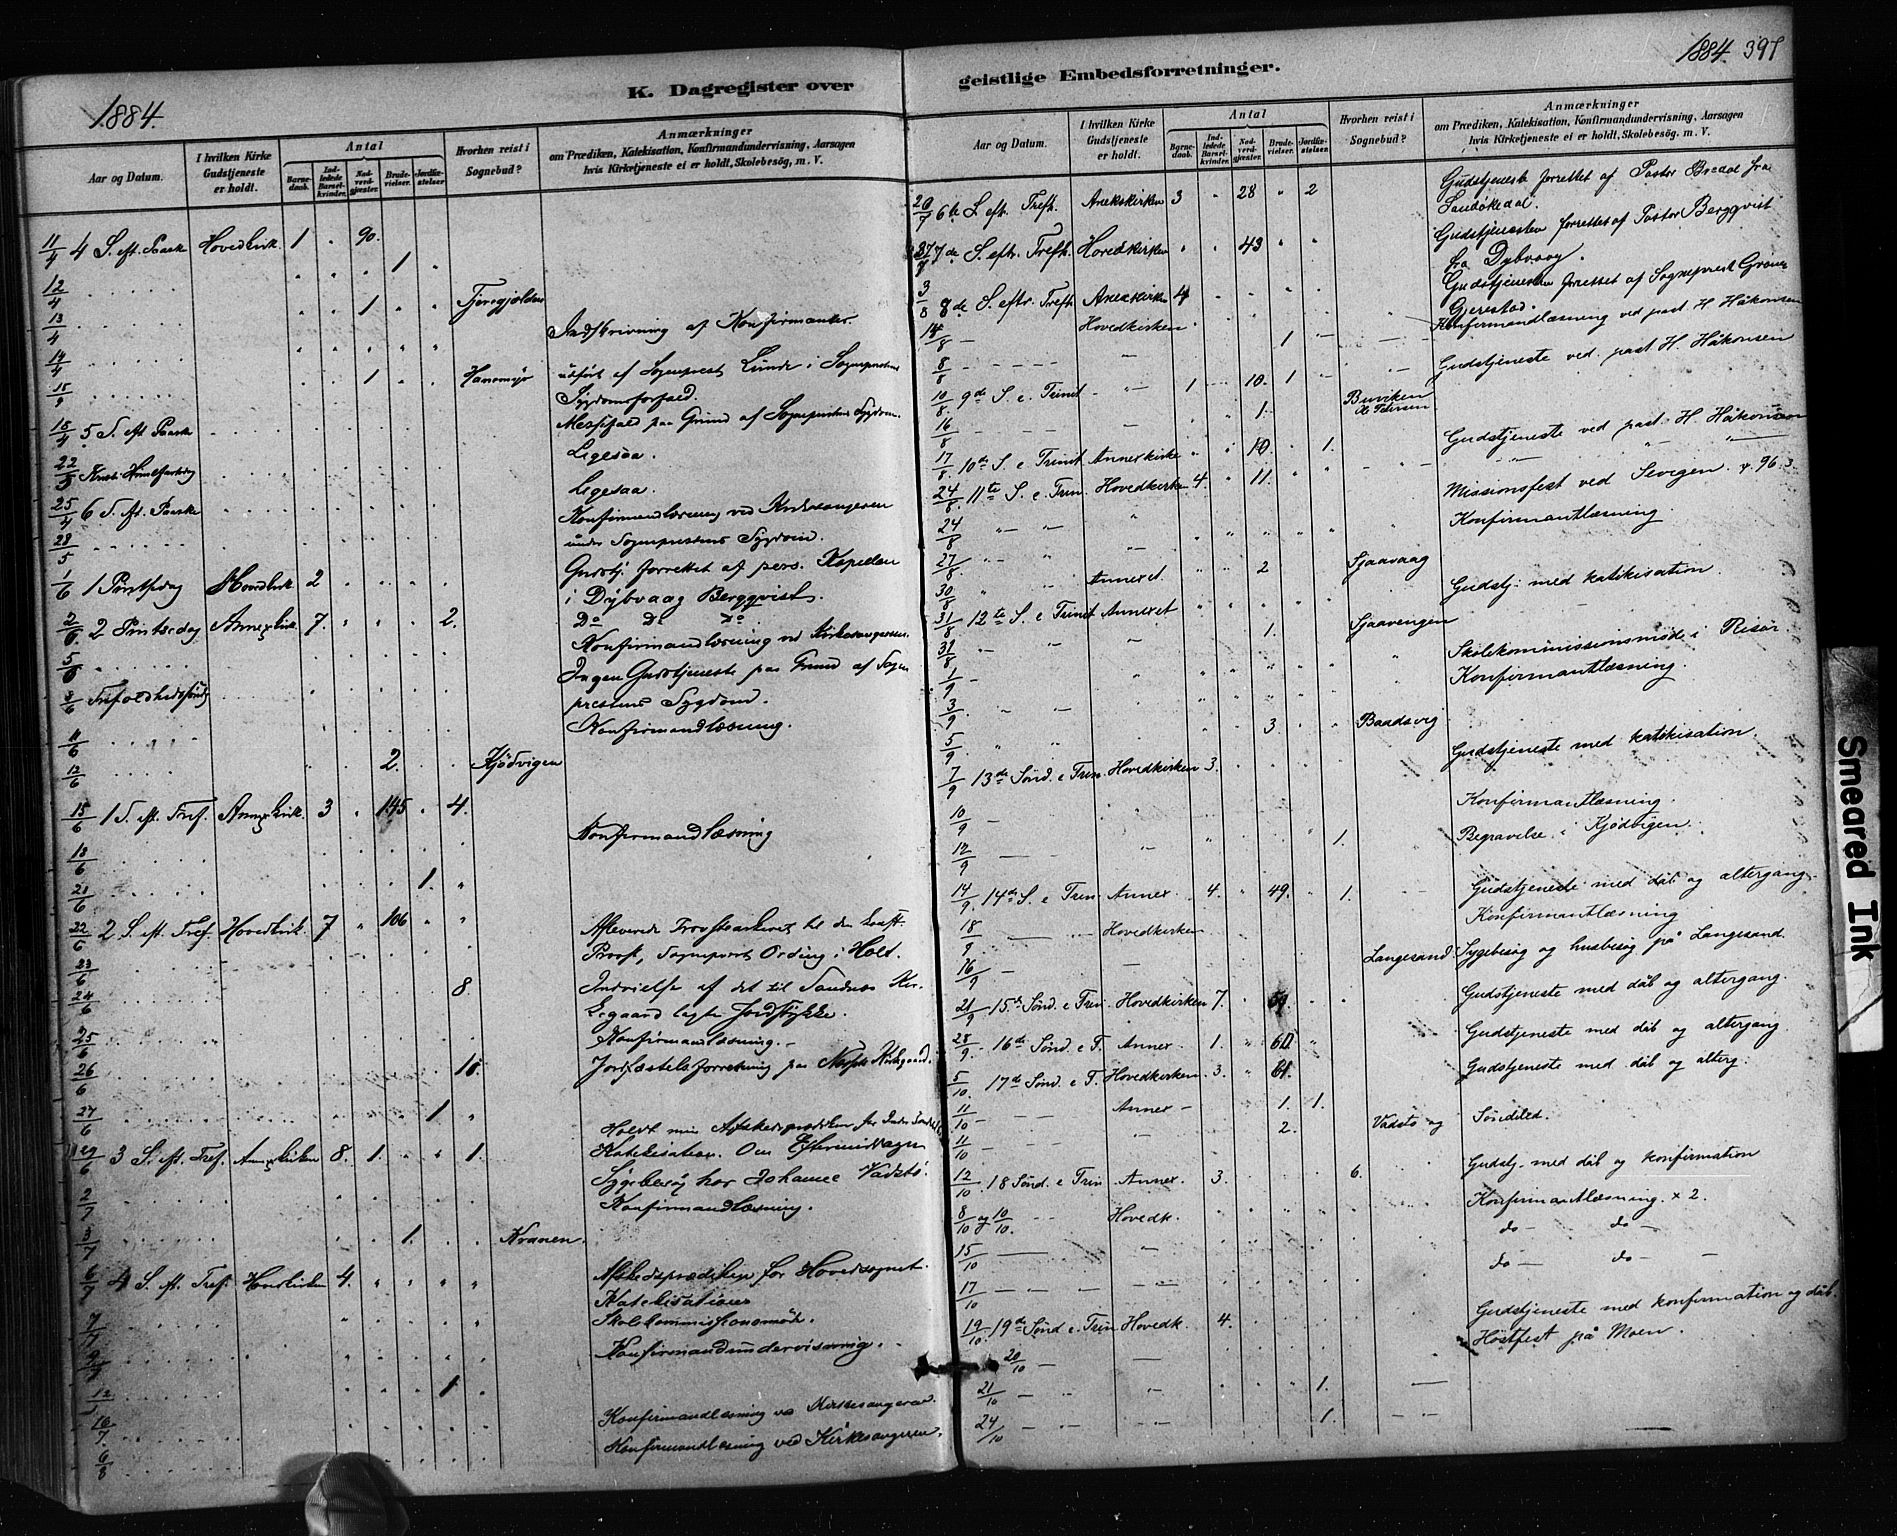 1884.
K. Dagregister over
Aar og Datum.
I hvilken Kirke Gudstjeneste er holdt.
Antal
Barnedaab.
Indledede Barselkvinder.
Nadverdgjæster.
Brudevielser.
Jordfæstelser
Hvorhen reist i Sognebud?
Anmærkninger
om Prædiken, Katekisation, Konfirmandundervisning, Aarsagen
hvis Kirketjeneste ei er holdt, Skolebesög, m. V.
11/4 4 S. eft. Paaske Hovedkirk. 1 " 90.
12/4 1
13/4 1
Indskrivning af Konfirmanter.
14/4
15/5 1
udført af Sogneprest Lunde i Sogneprestens
Sygdomsforfald.
18/4 5 S. eft. Paaske Messefald paa Grund af Sogneprestens Sygdom.
22/5 Ligesaa.
25/4 6 S. eft. Paaske Ligesaa.
28/5 Konfirmandlæsning ved Kirkesangeren
under Sogneprestens Sygdom.
1/6 1 Pintsedag Hovedkirk. 2 Gudstj. forrettet af pers. Kapellan
i Dybvaag Bergqvist.
2/6 2 Pintsedag Annexkirk. 7. 2. Do Do Do
5/6 Konfirmandlæsning ved Kirkesangeren.
8/6 Trefoldhedssöndag Ingen Gudstjeneste paa Grund af Sogne
prestens Sygdom.
11/6 Konfirmandlæsning.
12/6 2. Kjödvigen
15/6 1 S. eft. Tref. Annexkirk. 3 " 145 " 4.
18/6 Konfirmandlæsning
21/6 1. "
22/6 2 S. eft. Tref. Hovedkirk. 7 " 106 " "
23/6 Afleverede Provstearkivet til den konst.
Provst, Sogneprest Ording i Holt.
24/6 8. Indvielse af det til Sandnes Kir-
kegaard lagte Jordstykke.
25/6 Konfirmandlæsning.
26/6 10. Jordfæstelsesforretning paa Kirkegaard.
27/6 1 "
29/6 3 S. eft. Tref. Annexkirken 8. 1. " " 1. Holdt min Afskedsprædiken for
Katekisation. Om Eftermiddagen
Sygebesög hos Johanne Vadstö.
2/7 Konfirmandlæsning.
3/7 1. Kranen.
6/7 4 S. eft. Tref. Hovedkirken 4. Afskedsprædiken for Hovedsognet.
Katekisation
7/7 Skolekommissionsmöde.
9/7 Konfirmandundervisning.
12/7 1
16/7 Konfirmandlæsning ved Kirkesangeren.
6/8 Konfirmandlæsning ved Kirkesangeren.
1884. 397
geistlige Embedsforretninger.
Aar og Datum.
I hvilken Kirke Gudstjeneste er holdt.
Antal
Barnedaab.
Indledede Barselkvinder.
Nadverdgjæster.
Brudevielser.
Jordfæstelser
Hvorhen reist i Sognebud?
Anmærkninger
om Prædiken, Katekisation, Konfirmandundervisning, Aarsagen
hvis Kirketjeneste ei er holdt, Skolebesög, m. V.
20/7 6te S. eft. Trefh. Anekskirken 3 " 28 " 2 Gudstjeneste forrettet af Pastor Bredal fra
Sandökedal.
27/7 7de S. eftr. Trefh. Hovedkirken " " 43 " " Gudstjenesten forrettet af Pastor Bergqvist
fra Dybvaag.
3/8 8de S. eftr. Trefh. Anexkirken 4 Gudstjenesten forrettet af Sogneprest
Gjerestad.
Hovedkirken Konfirmandlæsning ved past H. Håkonsen
8/8 1
10/8 9de S. e. Trinit 1 10. 1 Gudstjeneste ved past. H. Håkonsen
16/8 1. Buviken
17/8 10de S. e. Trinit Annexkirke 10. 1. Gudstjeneste ved past. H. Håkonsen
24/8 11te S. e. Trin. Hovedkirken 4. " 11.
24/8 Missionsfest ved Sevegen
27/8 Konfirmantlæsning.
30/8 Annexet 2 Sjaavaag
31/8 12te S. e Trinit Annexet Gudstj. med katikisation.
31/8 1. Sjaavengen
1/9 Skolekommissionsmöde i Risør.
3/9 Konfirmantlæsning.
5/9 3 Baadsvig
7/9 13de Sönd. e Trin. Hovedkirken 3. Gudstjeneste med katekisation.
10/9 Konfirmantlæsning.
12/9 1. Begravelse i Kjödvigen.
14/9 14de S. e Trin. Annex. 4. " 49. 1. Gudstjeneste med dåb og altergang
18/9 Hovedkirken Konfirmantlæsning
16/9 Langesand Sygebesög og husbesög på Langesand.
21/9 15de Sönd. e Trin. Hovedkirken 7. Gudstjeneste med dåb og altergang.
28/9 16de Sönd. e T. Annex. 1. Gudstjeneste med dåb og altergang
5/10 17de Sönd. e T. Hovedkirken. 3. Gudstjeneste med dåb og alterg.
11/10 Annex 1. 1.
11/10 2. Vadstö og Söndeled.
12/10 18 Sönd. e Trin Annex. 3. 6. Gudstj. med dåb og konfirmation
8/10 og 10/10 Hovedk. Konfirmantlæsning. x 2.
15/10 do — do —
17/10 do — do —
19/10 19de Sönd e. Trin Hovedk. 4. Gudstjeneste med konfirmation og dåb.
20/10 Höstfest på Moen.
21/10 1.
24/10 1.
Smeared Ink